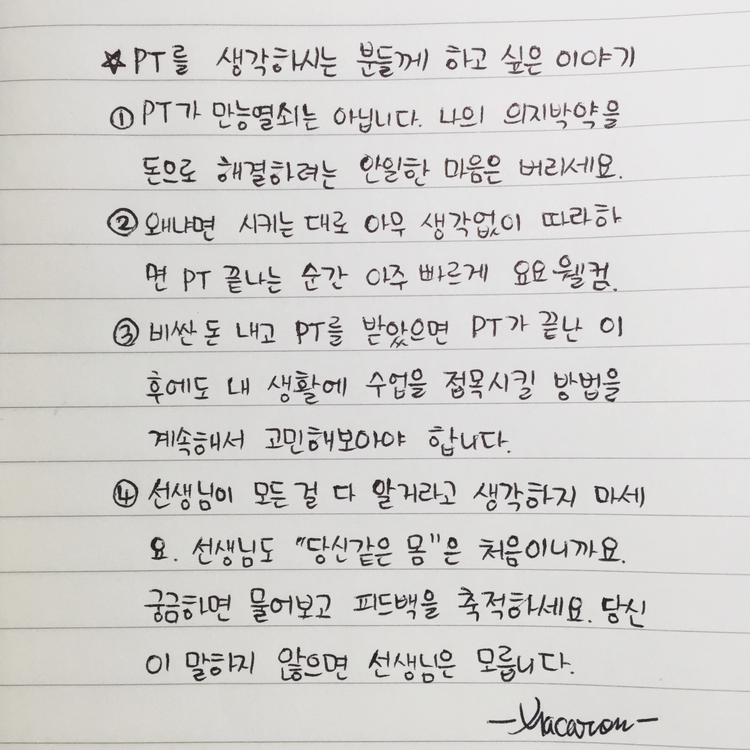 ☆ PT를 생각하시는 분들께 하고 싶은 이야기
① PT가 만능열쇠는 아닙니다. 나의 의지박약을
돈으로 해결하려는 안일한 마음은 버리세요.
② 왜냐면 시키는 대로 아무 생각없이 따라하
면 PT 끝나는 순간 아주 빠르게 요요웰컴.
③ 비싼 돈 내고 PT를 받았으면 PT가 끝난 이
후에도 내 생활에 수업을 접목시킬 방법을
계속해서 고민해보아야 합니다.
④ 선생님이 모든걸 다 알거라고 생각하지 마세
요. 선생님도 "당신같은 몸"은 처음이니까요.
궁금하면 물어보고 피드백을 축적하세요. 당신
이 말하지 않으면 선생님은 모릅니다.
-Macaron-